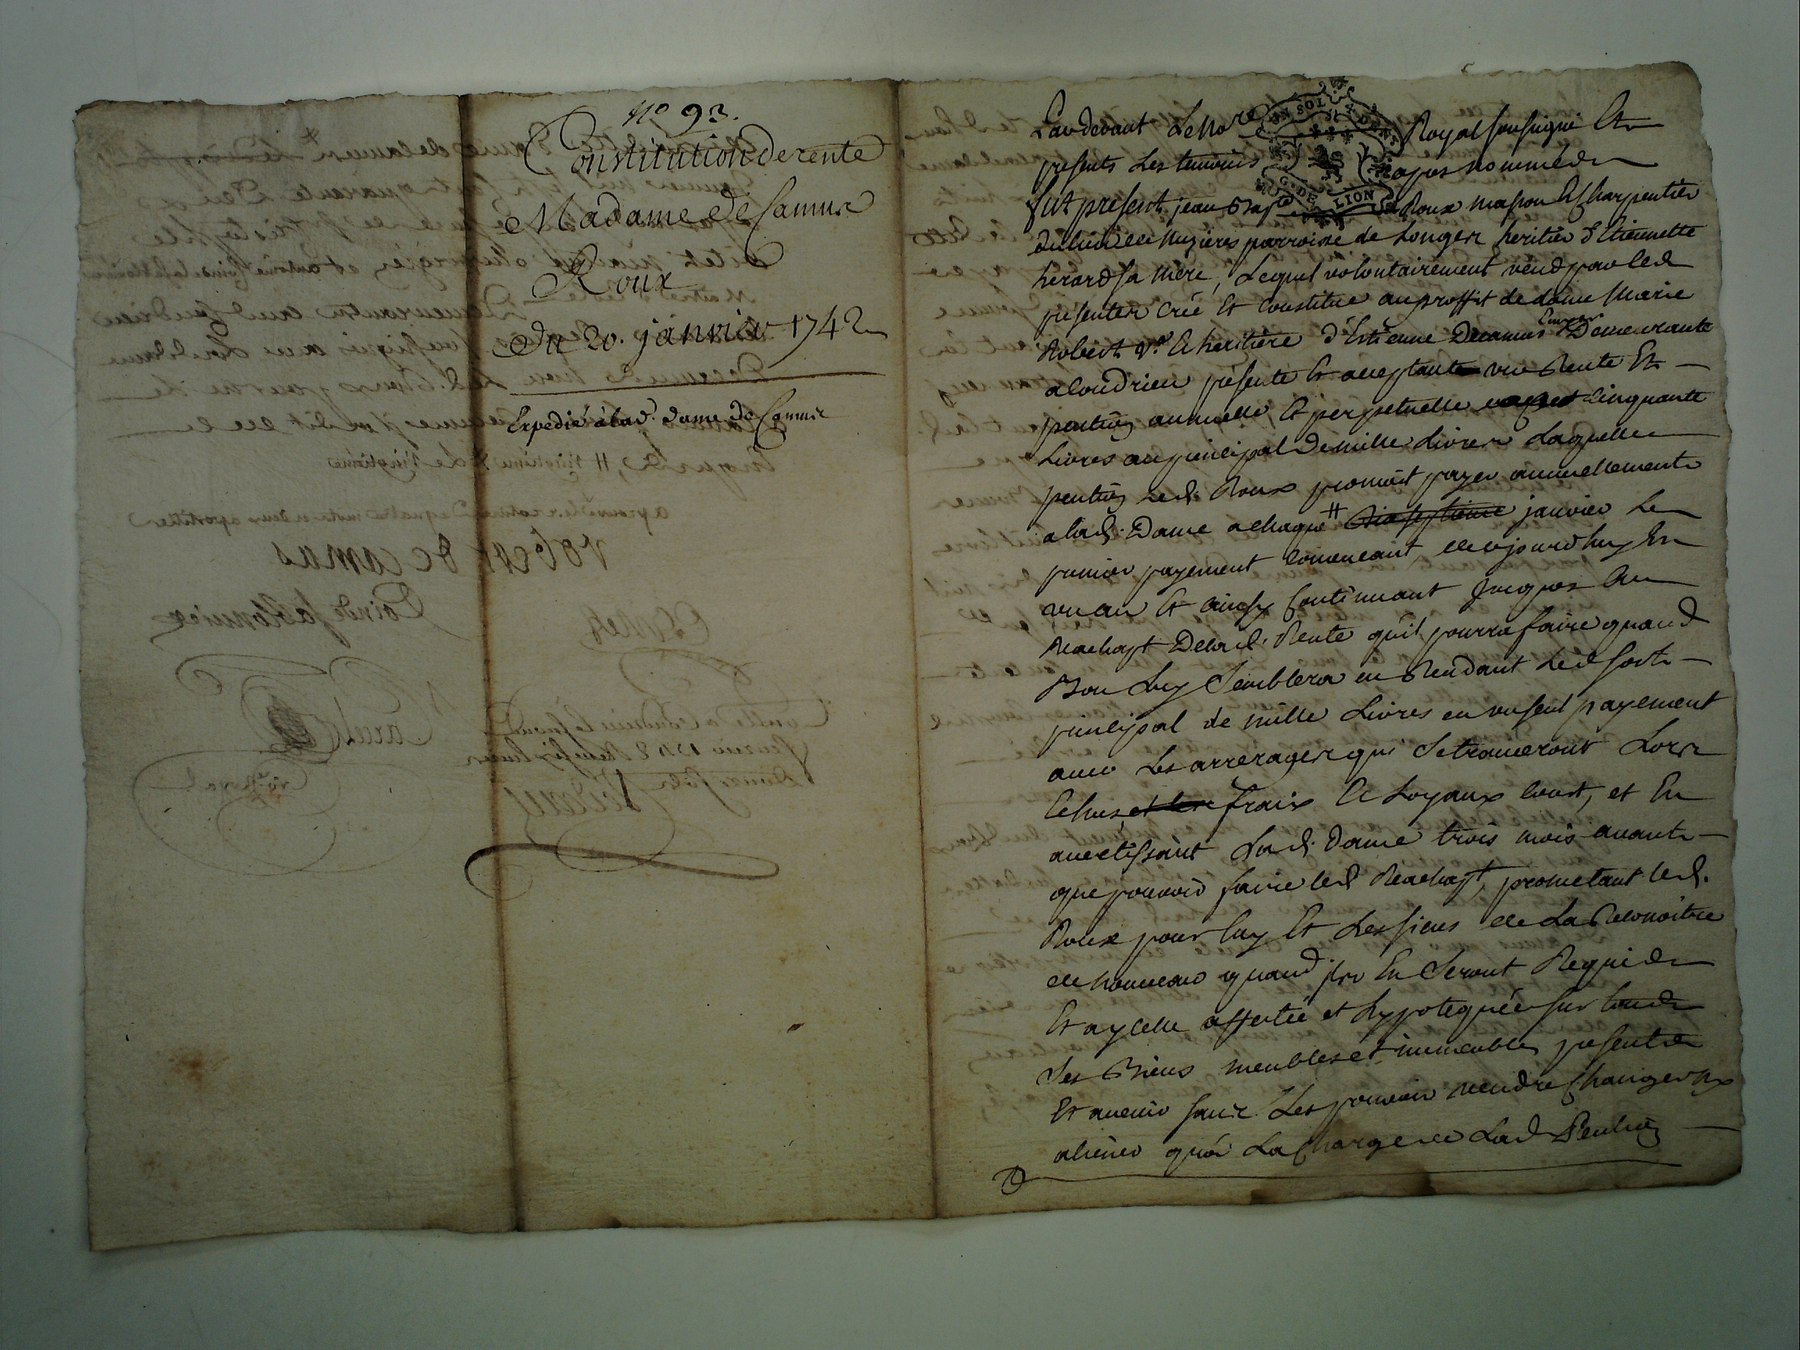 N° 93.
Constitution de rente
Madame De Camus
Roux
Du 20. janvier 1742
Expedié à lad. dame De Camus
Pardevant Le No.re Royal soussigné Et
presents Les temoins apres nommés
fut present jean Bap.te Roux masson Et Charpentier
du lieu de Mezieres parroisse de Longes heritier d'Etiennette
herard sa Mere, Lequel volontairement vend par les
presentes Crée Et Constitue au proffit de dame Marie
Robert v.e Et heritiere d'Estienne Decamus Demeurante
a Condrieu présente Et acceptante une Rente Et
pention annuelle Et perpetuelle Cinquante
Livres au principal De mille Livres Laquelle
pention led. Roux promet payer annuellement
a lad. Dame a chaque # dixseptieme janvier Le
premier payement Comencant, de ajourdhuy En
un an Et ainsy Continuant Jusques Au
Reachapt De lad. Rente qu'il pourra faire quand
Bon Luy Semblera en Rendant Led. sort
principal de mille Livres en un seul payement
avec Les arrerages qui Se trouveront Lors
Echus, et les fraix Et Loyaux Cout, et En
avertissant Lad. Dame trois mois avant
que pouvoir faire led. Reachapt, prometant led.
Roux pour luy Et Les siens de La Reconoitre
de nouveau quand ils En Seront Requis
Et aycelle affectée et hypotequée sur tous
Ses Biens meubles et immeubles presents
Et avenir sans Les pouvoir vendre Changer ny
aliener qu'a La Charge de Lad. Pention
ON SOL
G. DE LION